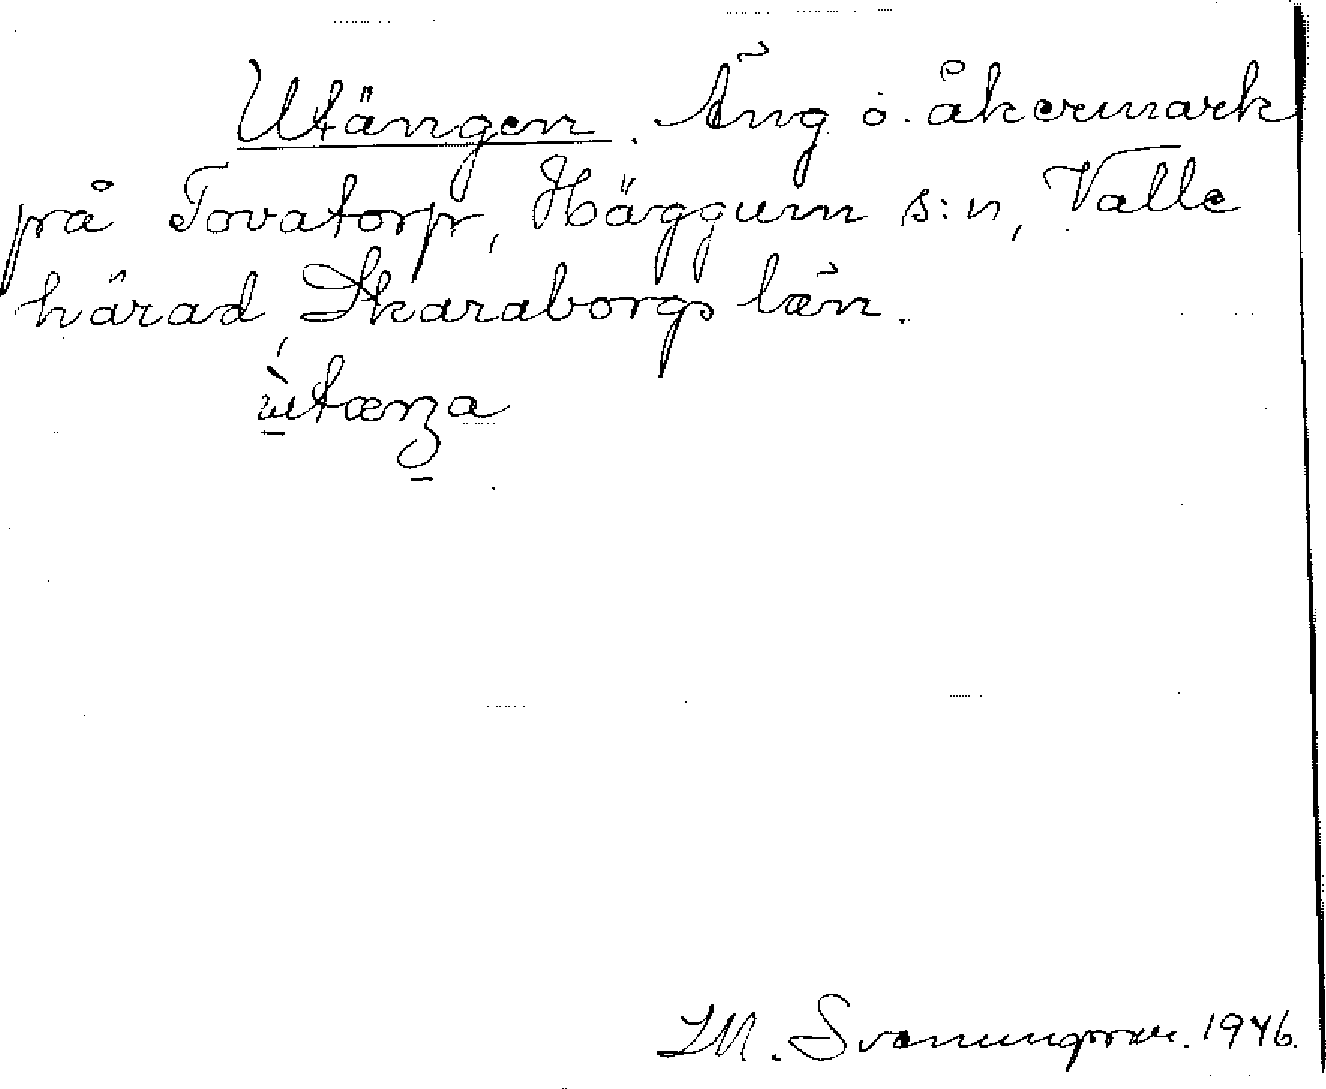 Utängen. Äng o. åkermark
på Tovatorp, Häggum s:n, Valle
härad, Skaraborgs län.
ùtæŋa
I.M. Svenungsson. 1946.